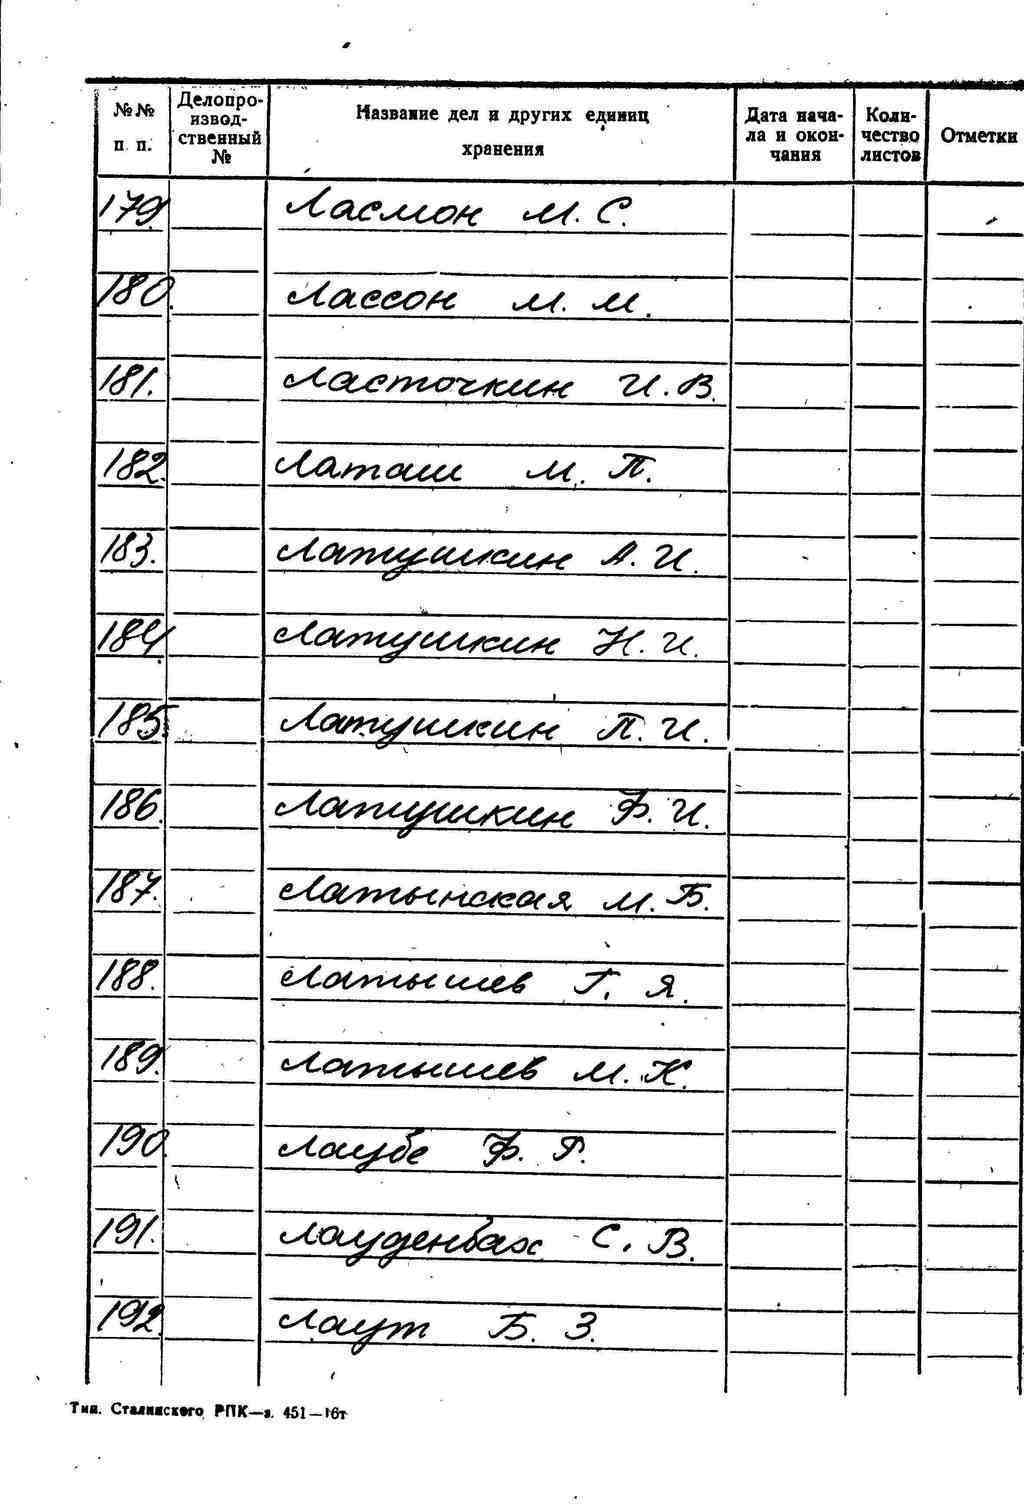 №№ п. п. Делопроизводственный № Название дел и других единиц хранения Дата начала и окончания Количество листов Отметки
179. Ласмон М. С.
180. Лассон М. М.
181. Ласточкин И. В.
182. Латаш М. П.
183. Латушкин А. И.
184. Латушкин Н. И.
185. Латушкин П. И.
186. Латушкин Ф. И.
187. Латынская М. Б.
188. Латышев Г. Я.
189. Латышев М. К.
190. Лаубе Ф. Г.
191. Лауденбах С. В.
192. Лаут Б. З.
Тип. Сталинского РПК—з. 451—16т